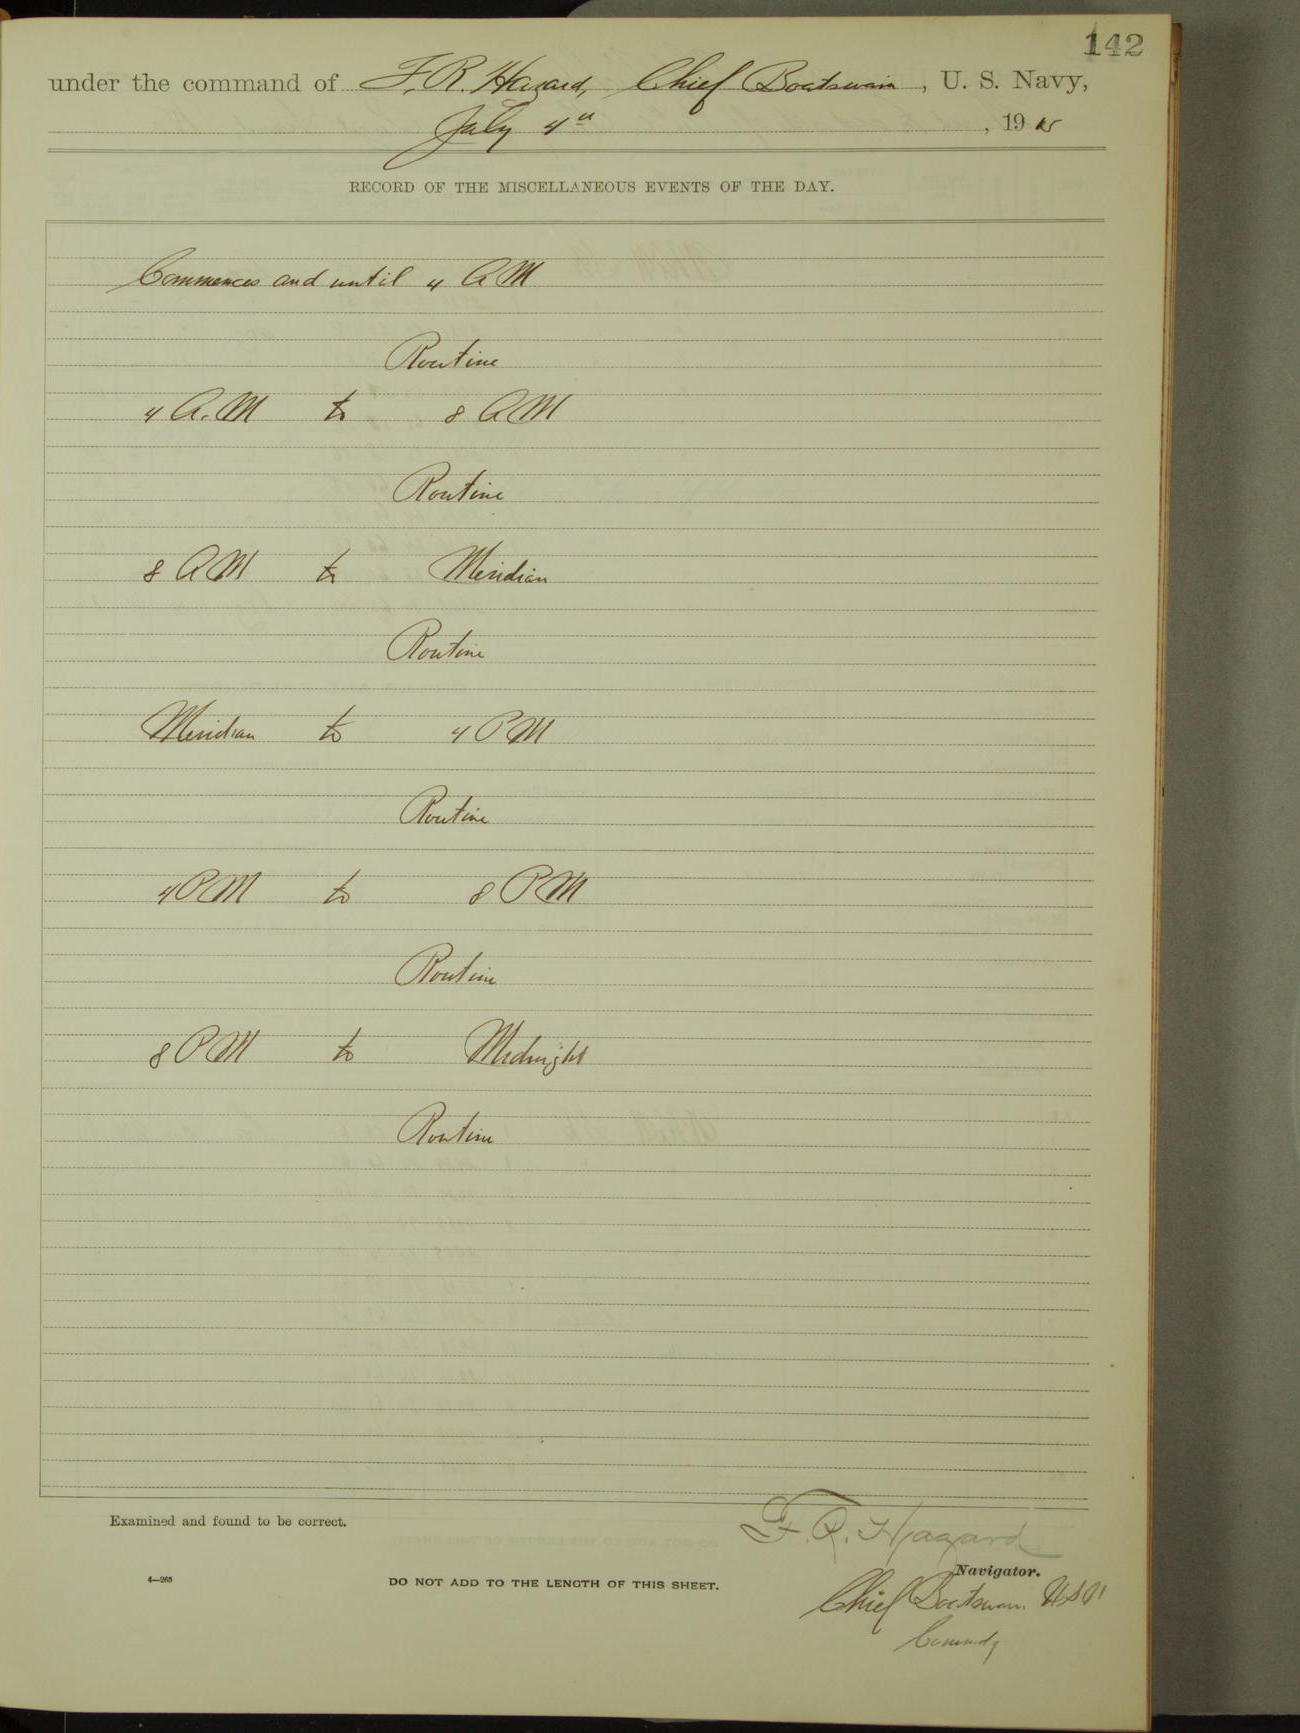 142
under the command of F. R. Hazard, Chief Boatswain, U. S. Navy,
July 4th, 19
RECORD OF THE MISCELLANEOUS EVENTS OF THE DAY.
Commences and until 4 AM
Routine
4 A.M to 8 AM
Routine
8 AM to Meridian
Routine
Meridian to 4 PM
Routine
4 PM to 8 PM
Routine
8 PM to Midnight
Routine
Examined and found to be correct.
F. R. Hazard
Navigator.
4—265
DO NOT ADD TO THE LENGTH OF THIS SHEET.
Chief Boatswain USN
Commdg